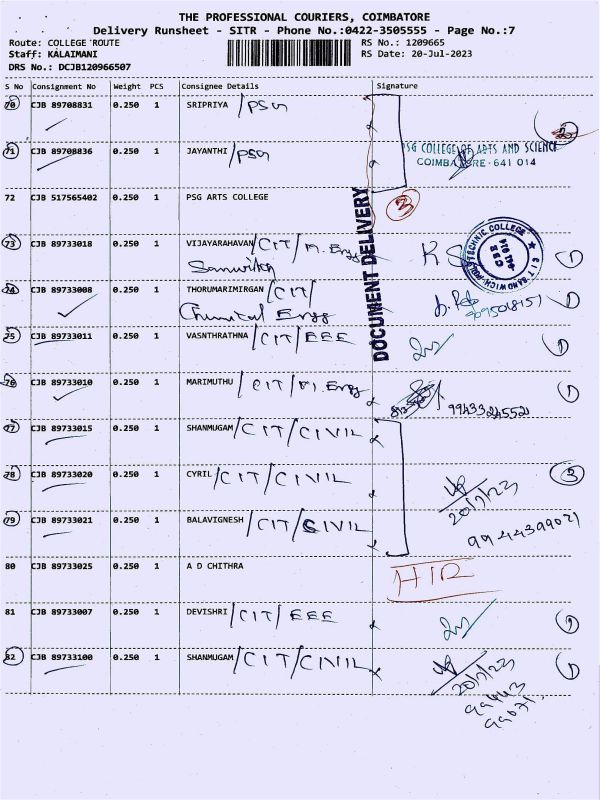 THE PROFESSIONAL COURIERS, COIMBATORE
Delivery Runsheet - SITR - Phone No.:0422-3505555 - Page No.:7
Route: COLLEGE ROUTE RS No.: 1209665
Staff: KALAIMANI RS Date: 20-Jul-2023
DRS No.: DCJB120966507
S No Consignment No Weight PCS Consignee Details Signature
70 CJB 89708831 0.250 1 SRIPRIYA / PSG
71 CJB 89708836 0.250 1 JAYANTHI / PSG
PSG COLLEGE OF ARTS AND SCIENCE
COIMBATORE - 641 014
72 CJB 517565402 0.250 1 PSG ARTS COLLEGE
3
DOCUMENT DELIVERY
73 CJB 89733018 0.250 1 VIJAYARAHAVAN / CIT / M. Engg 1
Sanwitch
74 CJB 89733008 0.250 1 THORUMARIMIRGAN / CIT / 1
Chemical Engg
75 CJB 89733011 0.250 1 VASNTHRATHNA / CIT / EEE 1
76 CJB 89733010 0.250 1 MARIMUTHU / CIT / M. Engg 1
77 CJB 89733015 0.250 1 SHANMUGAM / CIT / CIVIL
78 CJB 89733020 0.250 1 CYRIL / CIT / CIVIL 3
20/7/23
79 CJB 89733021 0.250 1 BALAVIGNESH / CIT / CIVIL
9944399071
80 CJB 89733025 0.250 1 A D CHITHRA
81 CJB 89733007 0.250 1 DEVISHRI / CIT / EEE 1
82 CJB 89733100 0.250 1 SHANMUGAM / CIT / CIVIL 1
20/7/23